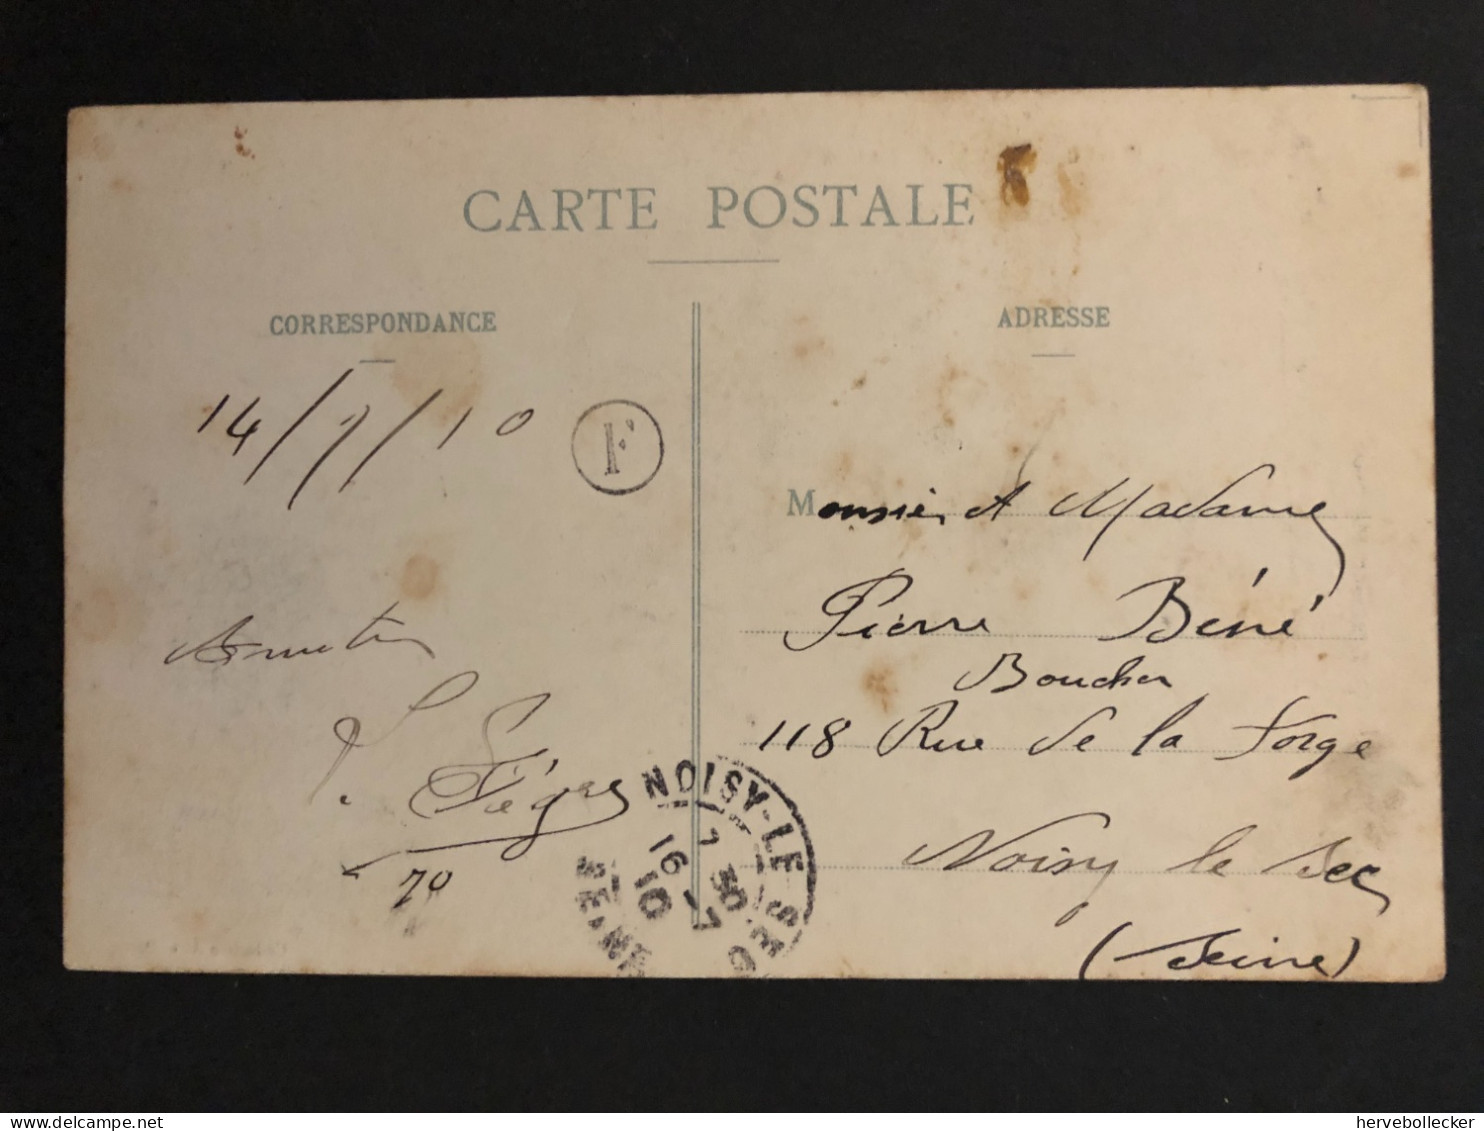 CARTE POSTALE
CORRESPONDANCE
ADRESSE
14/7/10
F
Monsieur et Madame
Pierre Béné
Boucher
118 Rue de la Forge
Noisy le Sec
(Seine)
70
NOISY-LE-SEC
7 30
16 -7
10
SEINE
hervebollecker